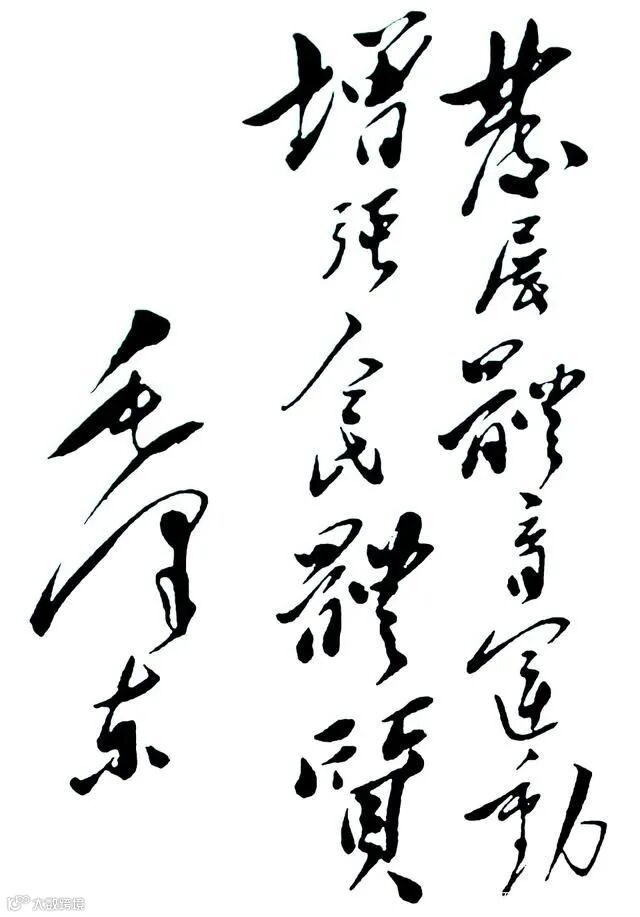 發展體育運動
增强人民體質
毛澤东
大数跨境